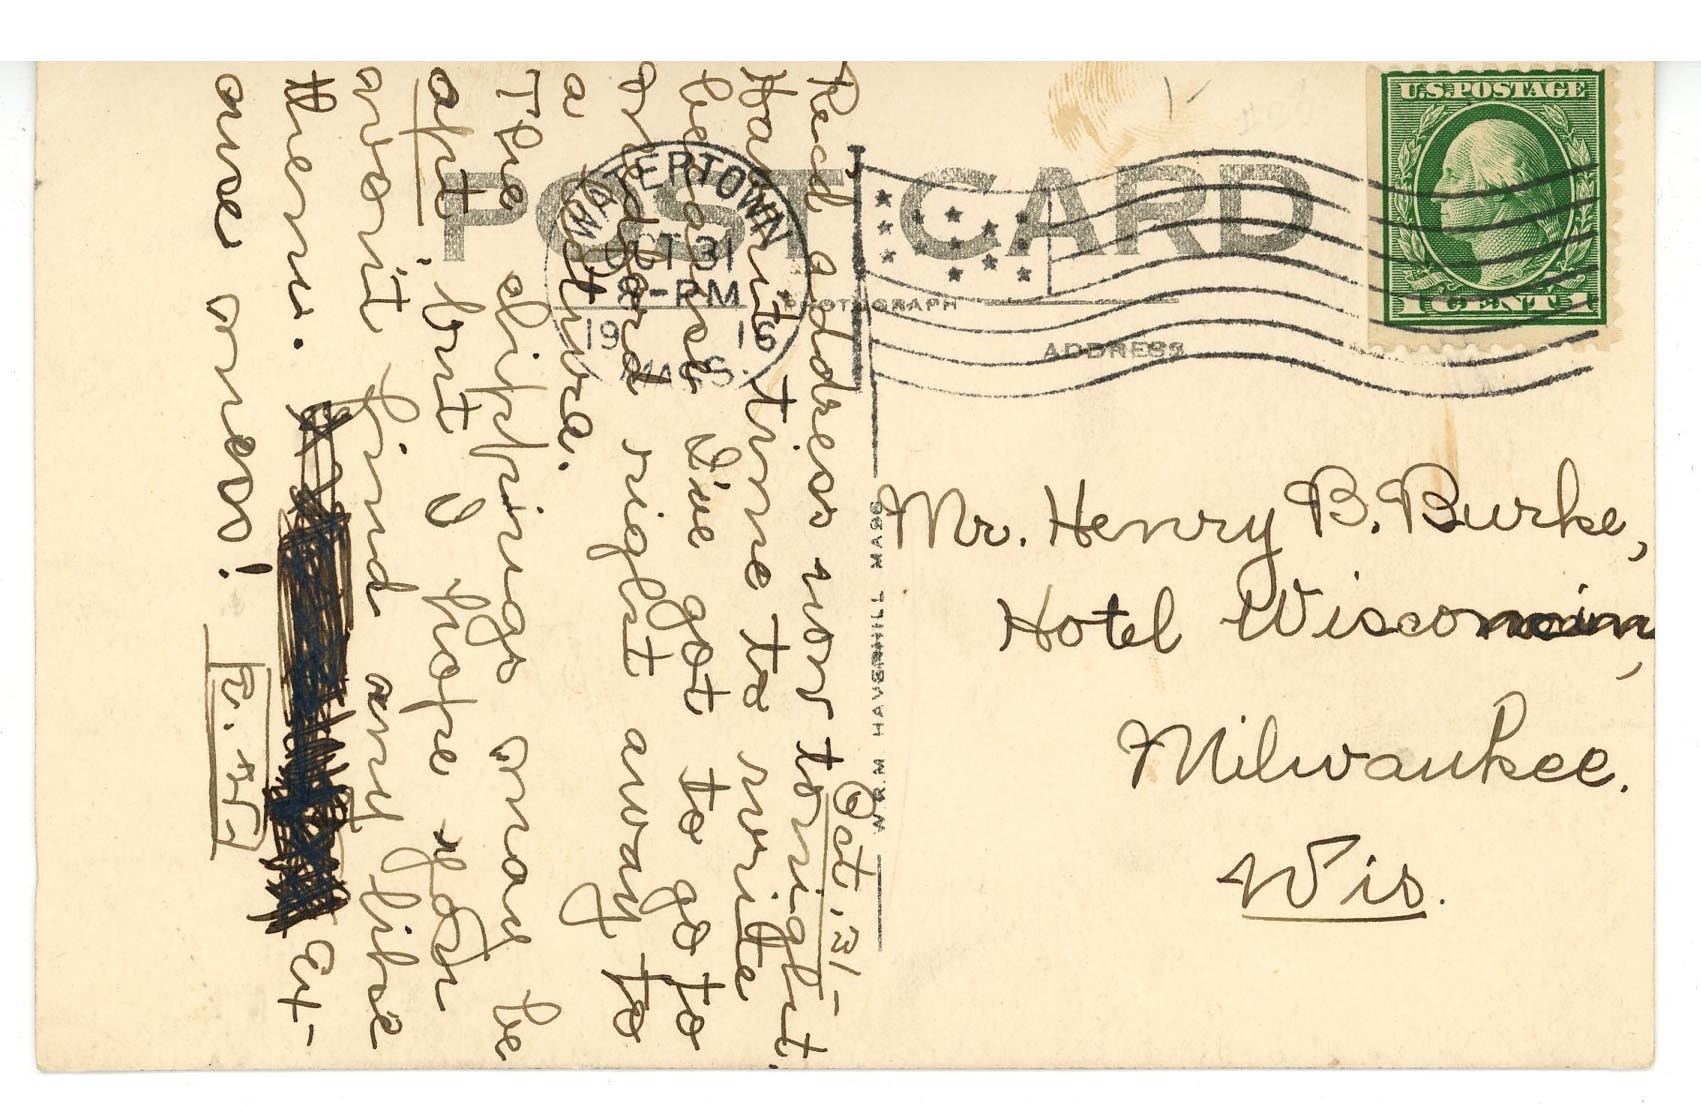 U.S. POSTAGE
1 CENT 1
POST CARD
WATERTOWN
OCT 31
8-PM
1916
MASS.
PHOTOGRAPH
ADDRESS
W.R.M HAVERHILL MASS
Mr. Henry B. Burke,
Hotel Wisconsin,
Milwaukee.
Wis.
Oct. 31-
Rec'd address now tonight.
Haven't time to write
because I've got to go to
Medford right away to
a
The clippings may be
apt, but I hope you
won't find any like
them. Ex-
cuse ones!